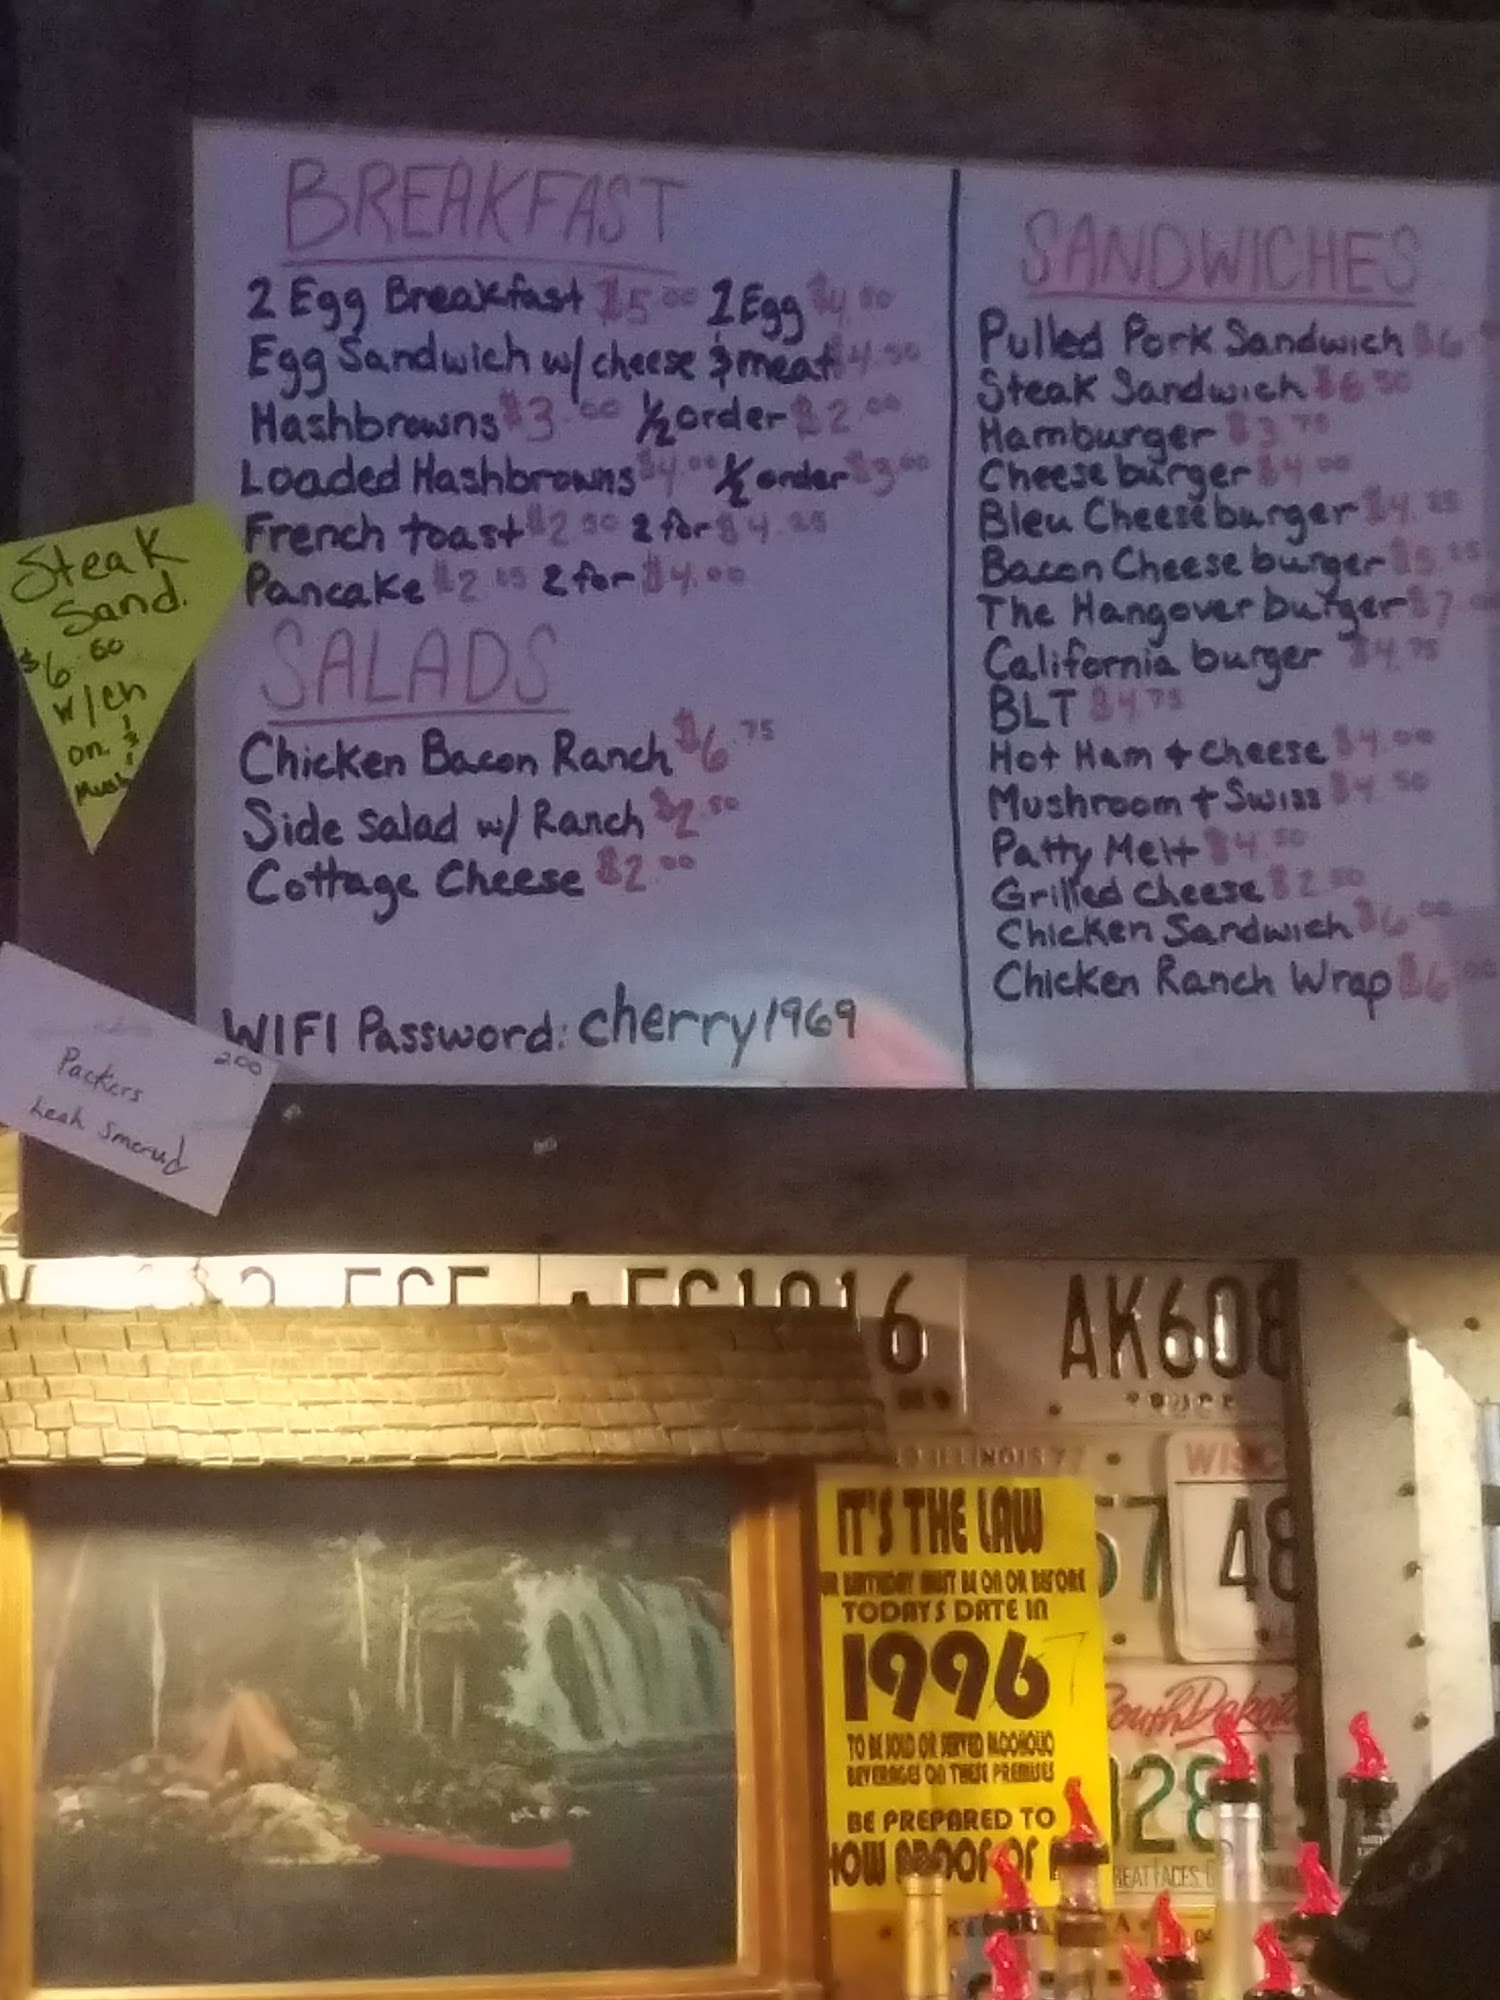 BREAKFAST
2 Egg Breakfast $5.00 1 Egg $4.50
Egg Sandwich w/ cheese & meat $4.50
Hashbrowns $3.00 1/2 order $2.00
Loaded Hashbrowns $4.00 1/2 order $3.00
French toast $2.50 2 for $4.25
Pancake $2.25 2 for $4.00
SALADS
Chicken Bacon Ranch $6.75
Side salad w/ Ranch $2.50
Cottage Cheese $2.00
WIFI Password: cherry1969
SANDWICHES
Pulled Pork Sandwich $6
Steak Sandwich $6.50
Hamburger $3.75
Cheeseburger $4.00
Bleu Cheeseburger $4.25
Bacon Cheeseburger
The Hangover burger $7
California burger $4.75
BLT $4.75
Hot Ham + Cheese $4.00
Mushroom + Swiss $4.50
Patty Melt $4.50
Grilled cheese $2.50
Chicken Sandwich $6.00
Chicken Ranch Wrap $6.00
Steak
Sand.
$6.50
w/ch
on. &
Mush
200
Packers
AK608
ILLINOIS 77
WISC
48
IT'S THE LAW
BIRTHDAY MUST BE ON OR BEFORE
TODAYS DATE IN
1996 7
TO BE SOLD OR SERVED ALCOHOLIC
BEVERAGES ON THESE PREMISES
BE PREPARED TO
PROOF OF
South Dakota